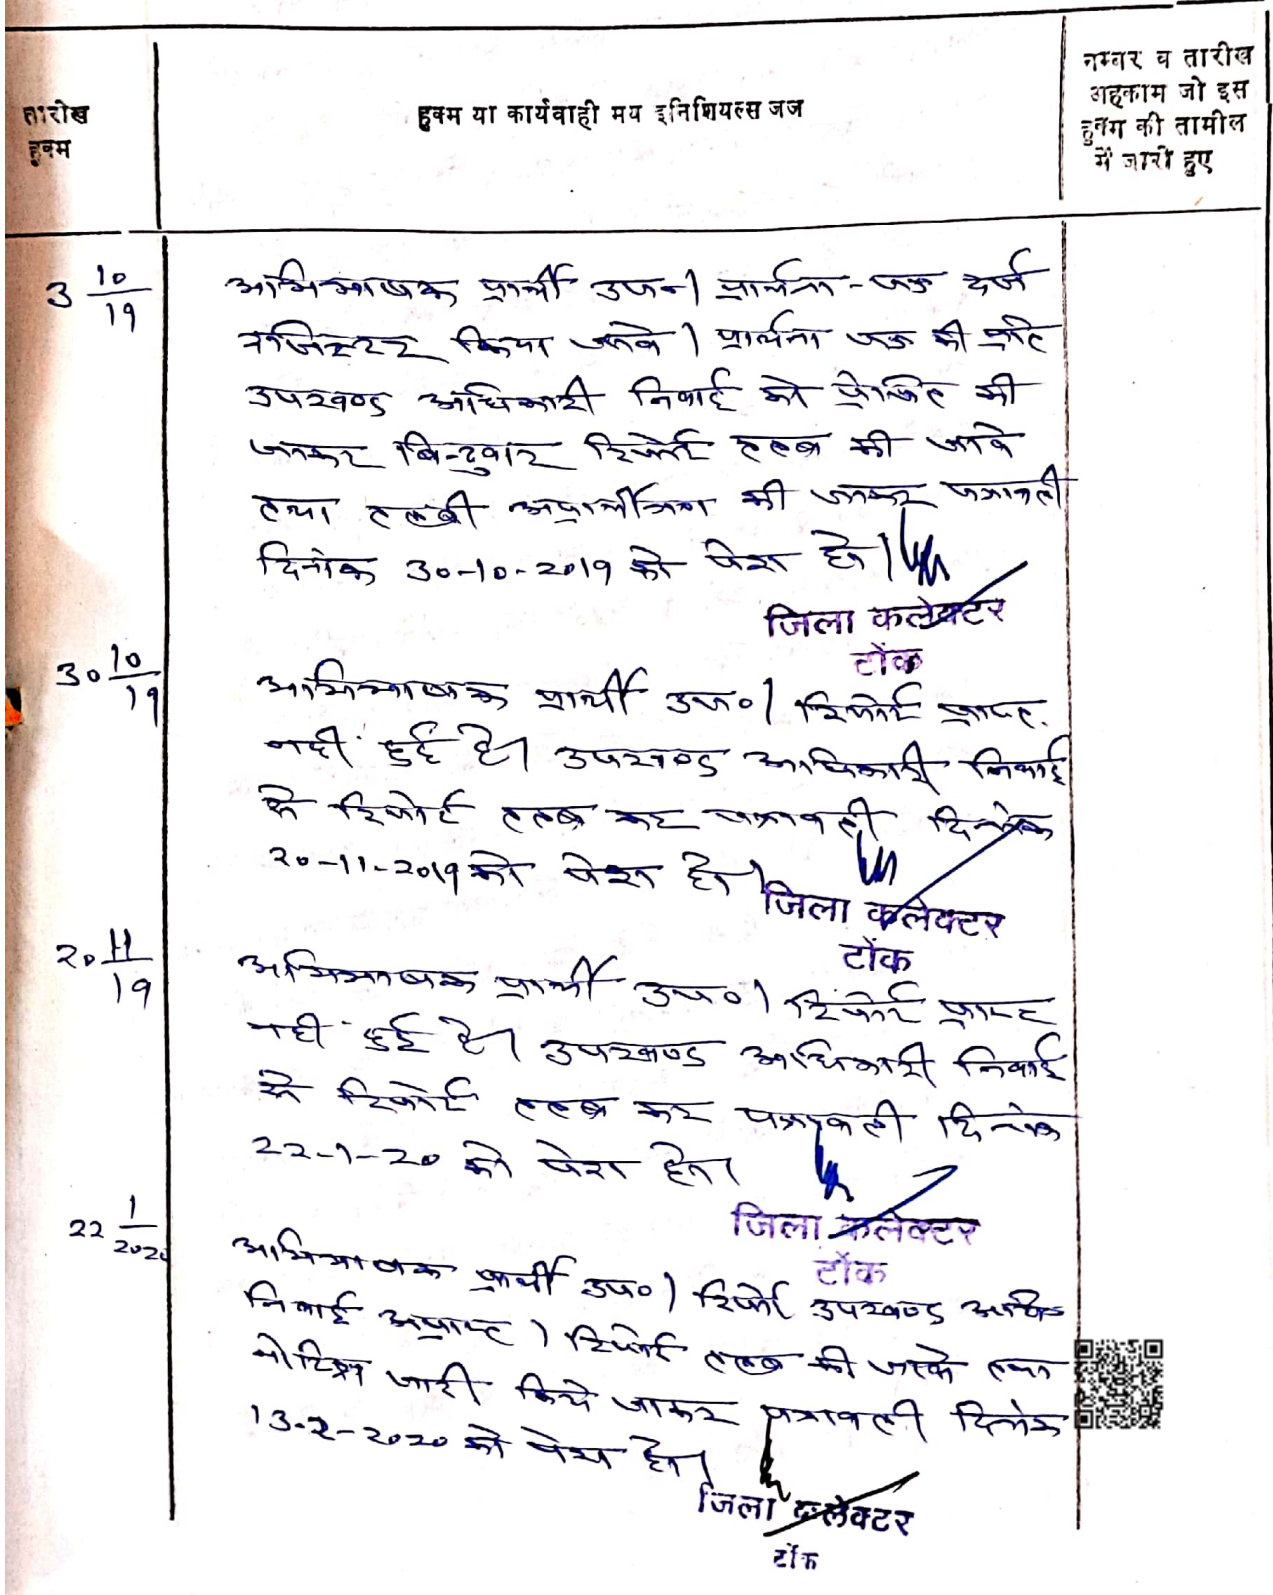 तारीख
हुक्म
हुक्म या कार्यवाही मय इनिशियल्स जज
नम्बर व तारीख
अहकाम जो इस
हुक्म की तामील
में जारी हुए
3 10/19
अभिभाषक प्रार्थी उप०। प्रार्थना-पत्र दर्ज
रजिस्टर किया जावे। प्रार्थना पत्र की प्रति
उपखण्ड अधिकारी निवाई को प्रेषित की
जाकर बिन्दुवार रिपोर्ट तलब की जावे
तथा तलबी अप्रार्थीगण की जाकर पत्रावली
दिनांक 30-10-2019 को पेश हो।
जिला कलेक्टर
टोंक
30 10/19
अभिभाषक प्रार्थी उप०। रिपोर्ट प्राप्त
नहीं हुई है। उपखण्ड अधिकारी निवाई
से रिपोर्ट तलब कर पत्रावली दिनांक
20-11-2019 को पेश हो।
जिला कलेक्टर
टोंक
20 11/19
अभिभाषक प्रार्थी उप०। रिपोर्ट प्राप्त
नहीं हुई है। उपखण्ड अधिकारी निवाई
से रिपोर्ट तलब कर पत्रावली दिनांक
22-1-20 को पेश हो।
जिला कलेक्टर
टोंक
22 1/2020
अभिभाषक प्रार्थी उप०। रिपोर्ट उपखण्ड अधि०
निवाई अप्राप्त। रिपोर्ट तलब की जावे तथा
नोटिस जारी किये जाकर पत्रावली दिनांक
13-2-2020 को पेश हो।
जिला कलेक्टर
टोंक